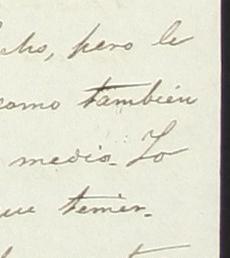 cho, pero le
como también
medio. Lo
que temer.